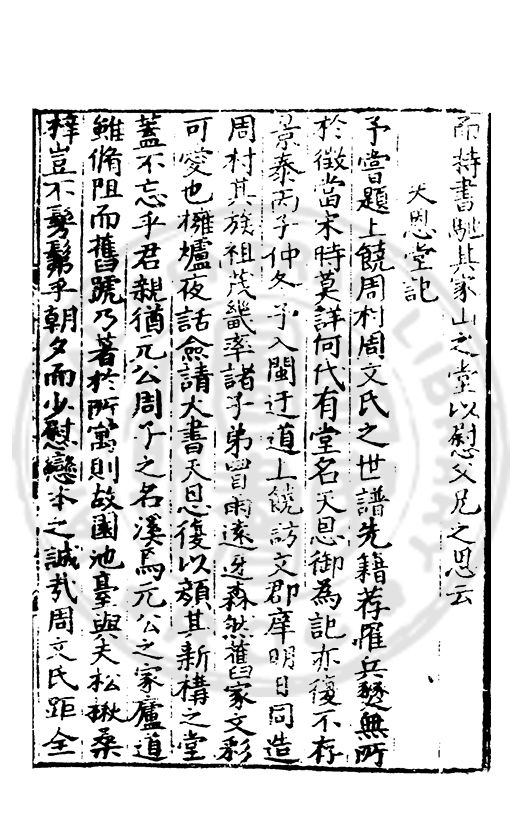 而持書馳其家山之堂以慰父兄之思云
天恩堂記
予嘗題上饒周村周文氏之世譜先籍荐罹兵燹無所
於徵當宋時莫詳何代有堂名天恩御為記亦復不存
景泰丙子仲冬予入閩迂道上饒訪文郡庠明日同造
周村其族祖茂畿率諸子弟冒雨遠迓森然舊家文彩
可愛也擁爐夜話僉請大書天恩復以顏其新構之堂
蓋不忘乎君親猶元公周子之名溪焉元公之家廬道
雖脩阻而舊號乃著於所寓則故園池臺與夫松楸桑
梓豈不髣髴乎朝夕而少慰戀本之誠哉周文氏距全